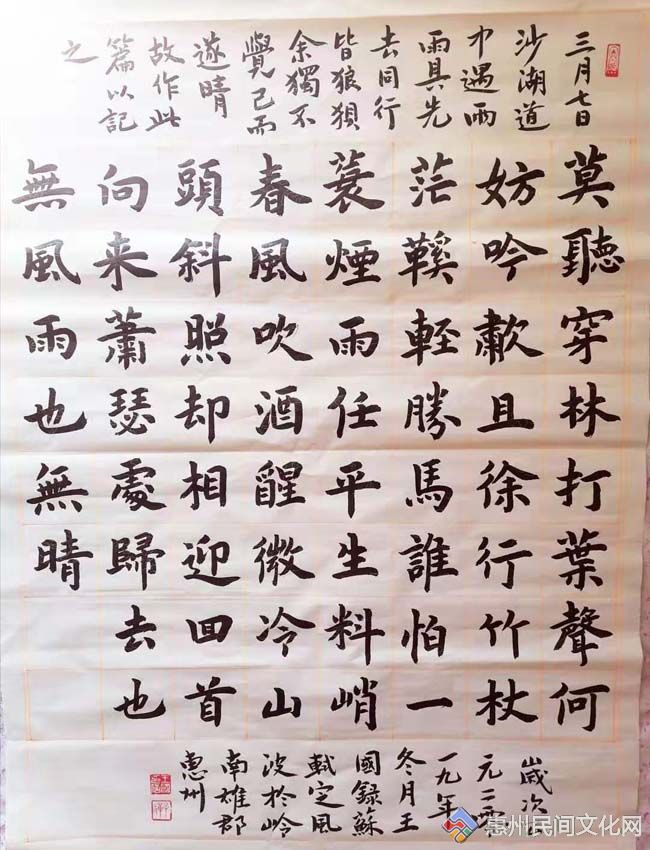 三月七日
沙湖道
中遇雨
雨具先
去同行
皆狼狽
余獨不
覺已而
遂晴
故作此
篇以記
之
莫聽穿林打葉聲何
妨吟歗且徐行竹杖
茫鞵輕勝馬誰怕一
蓑煙雨任平生料峭
春風吹酒醒微冷山
頭斜照却相迎回首
向来蕭瑟處歸去也
無風雨也無晴
歲次公
元二零
一九年
冬月王
國錄蘇
軾定風
波於岭
南雄郡
惠州
惠州民间文化网